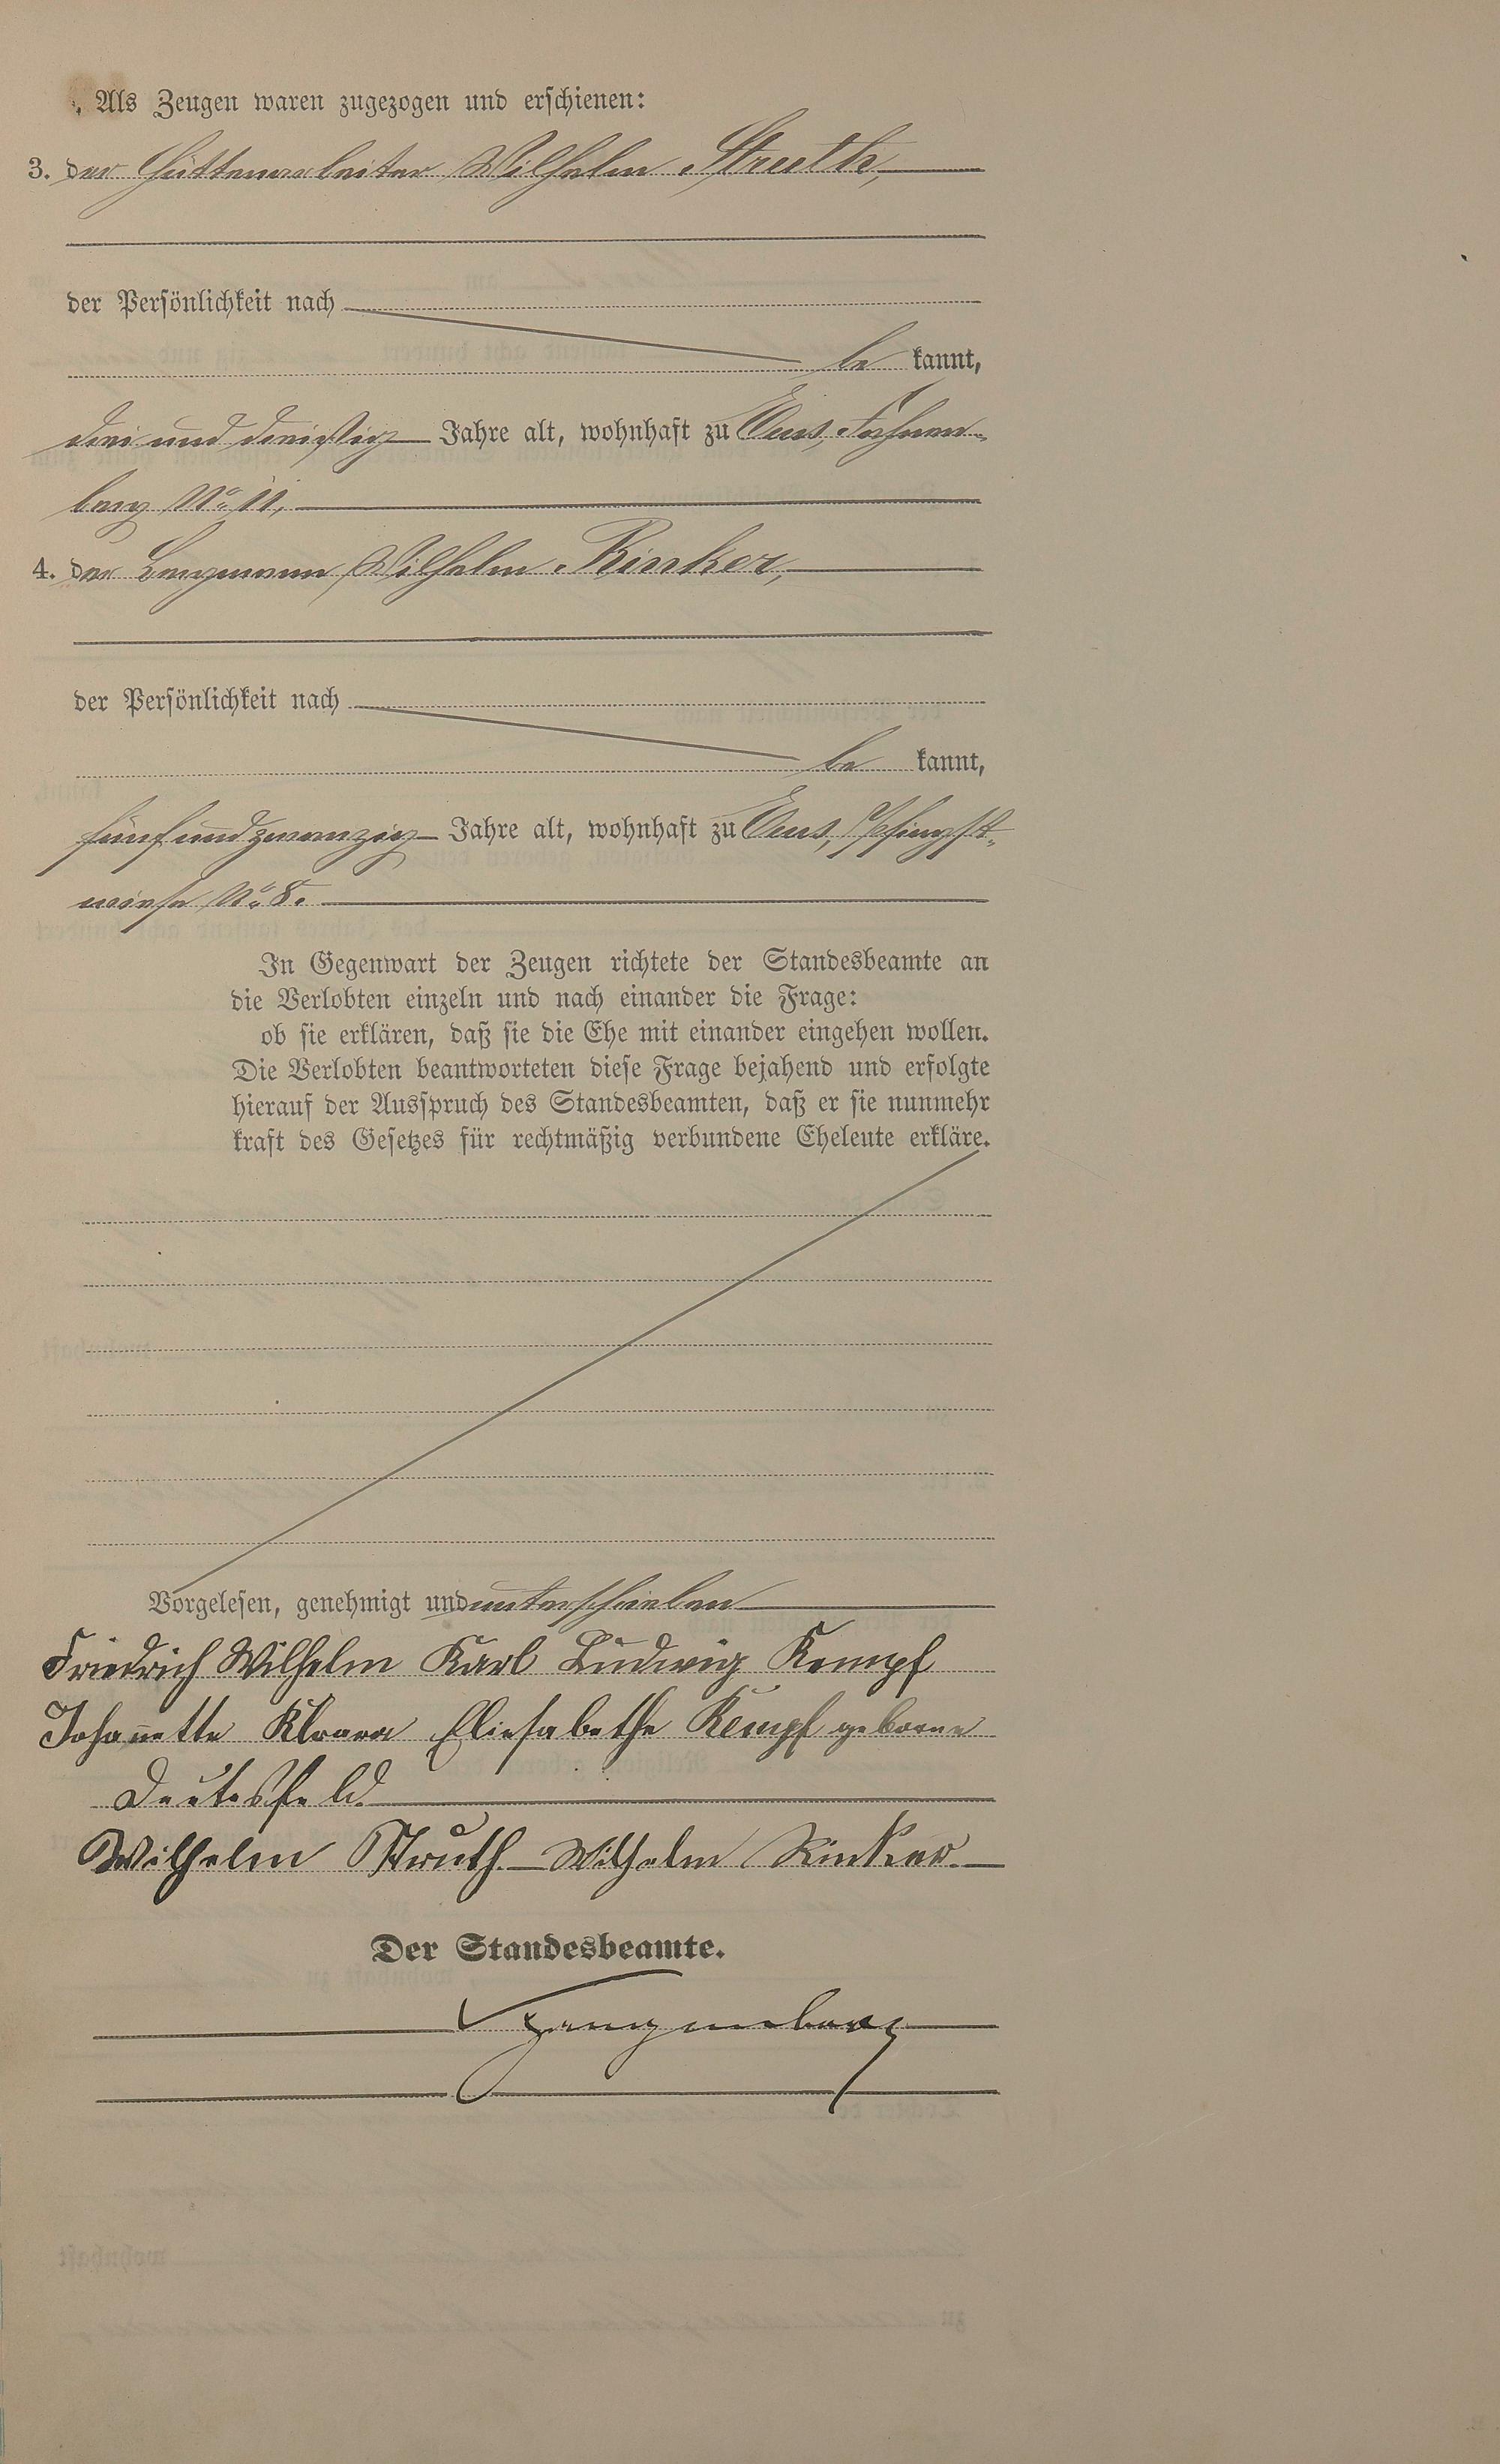 Als Zeugen waren zugezogen und erschienen:
3. der Hüttenarbeiter Wilhelm Struth,
der Persönlichkeit nach
be kannt,
drei und dreißig Jahre alt, wohnhaft zu Ems, Fahnen-
berg No 11,
4. der Bergmann Wilhelm Rinker,
der Persönlichkeit nach
be kannt,
fünf und zwanzig Jahre alt, wohnhaft zu Ems, Pfingst-
wiese No 8.
In Gegenwart der Zeugen richtete der Standesbeamte an
die Verlobten einzeln und nach einander die Frage:
ob sie erklären, daß sie die Ehe mit einander eingehen wollen.
Die Verlobten beantworteten diese Frage bejahend und erfolgte
hierauf der Ausspruch des Standesbeamten, daß er sie nunmehr
kraft des Gesetzes für rechtmäßig verbundene Eheleute erkläre.
Vorgelesen, genehmigt und unterschrieben
Friedrich Wilhelm Karl Ludwig Kempf
Johannette Klara Eliesabethe Kempf geborne
Deutesfeld
Wilhelm Struth Wilhelm Rinker
Der Standesbeamte.